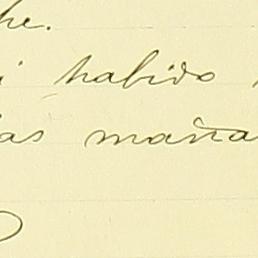 he.
i habido
as maña